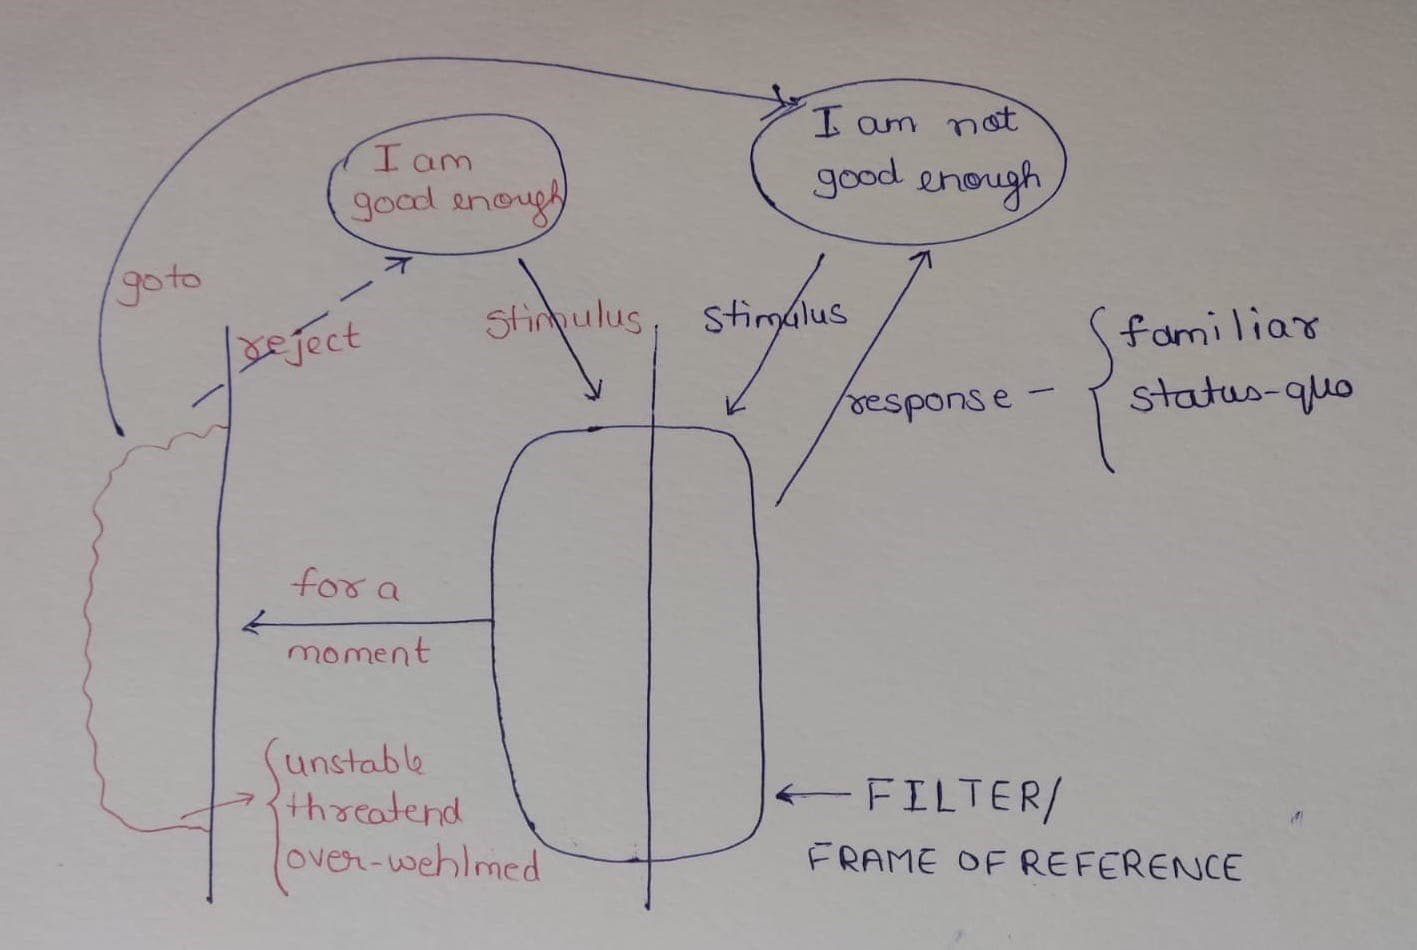 I am
good enough
I am not
good enough
goto
reject
stimulus
stimulus
response -
familiar
status-quo
for a
moment
unstable
threatend
over-wehlmed
FILTER/
FRAME OF REFERENCE